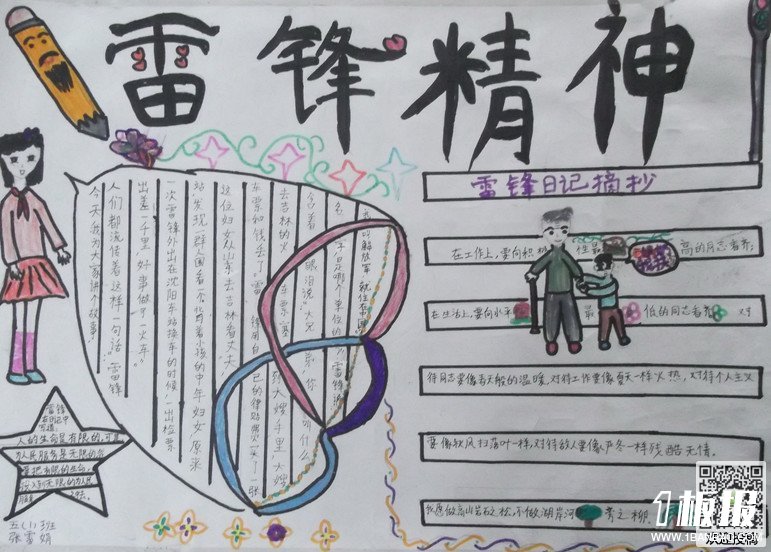 雷锋精神
今天,我为大家讲个故事。
人们都流传着这样一句话“雷锋
出差一千里,好事做了一火车”。
一次雷锋外出在沈阳车站换车的时候,一出检票
站,发现一群人围着一个背着小孩的中年妇女,原来
这位妇女从山东去吉林看丈夫,
车票和钱丢了。雷锋用自己的津贴费买了一张
去吉林的火车票塞
含着眼泪说:“大兄弟,你叫什么
名
我叫解放军,就住在中国
雷锋日记摘抄
在工作上,要向积极性最高的同志看齐;
在生活上,要向水平最低的同志看齐。对
待同志要像春天般的温暖,对待工作要像夏天一样火热,对待个人主义
要像秋风扫落叶一样,对待敌人要像严冬一样残酷无情。
我愿做高山岩石之松,不做湖岸河旁之柳
雷锋
在日记中
写道:
人的生命是有限的,可是
为人民服务是无限的,我
要把有限的生命,
投入到无限的为人民
服务之中去。
五(1)班
张雪娟
1板报
WWW.1BANBAO.COM
欢迎扫描